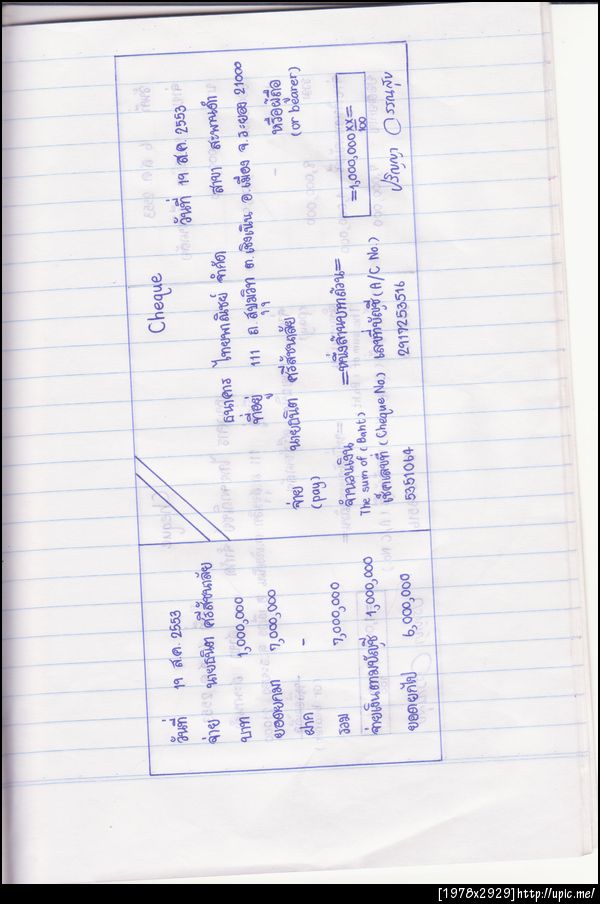 วันที่ 19 ส.ค. 2553
จ่าย นายธนิต ศรีสัชนาลัย
บาท 1,000,000
ยอดยกมา 7,000,000
ฝาก -
รวม 7,000,000
จ่ายเงินตามบัญชี 1,000,000
ยอดยกไป 6,000,000
Cheque
วันที่ 19 ส.ค. 2553
ธนาคาร ไทยพาณิชย์ จำกัด สาขา สะพานดำ
ที่อยู่ 111 ถ. สุขุมวิท ต. เชิงเนิน อ. เมือง จ. ระยอง 21000
จ่าย นายธนิต ศรีสัชนาลัย หรือผู้ถือ
(pay) (or bearer)
จำนวนเงิน =หนึ่งล้านบาทถ้วน= =1,000,000 xx/100=
The sum of (Baht)
เช็คเลขที่ (Cheque No.) เลขที่บัญชี (A/C No.) ปริญญา
5351064 2917253516
[1978x2929]http://upic.me/